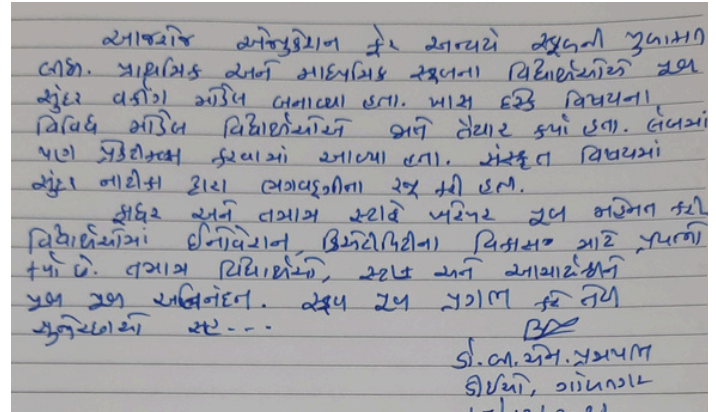 આજરોજ એજ્યુકેશન ફેર અન્વયે સ્કૂલની મુલાકાત
લીધી. પ્રાથમિક અને માધ્યમિક સ્કૂલના વિદ્યાર્થીઓએ ખૂબ
સુંદર વર્કીંગ મોડેલ બનાવ્યા હતા. ખાસ દરેક વિષયના
વિવિધ મોડેલ વિદ્યાર્થીઓએ તૈયાર કર્યા હતા. લેબમાં
પણ પ્રેક્ટીકલ્સ કરવામાં આવ્યા હતા. સંસ્કૃત વિષયમાં
સુંદર નાટીકા દ્વારા ભગવદ્ગીતા રજૂ કરી હતી.
ફાધર અને તમામ સ્ટાફે ખરેખર ખૂબ મહેનત કરી
વિદ્યાર્થીઓમાં ઈનોવેશન, ક્રિએટીવિટીના વિકાસ માટે પ્રયત્નો
કર્યા છે. તમામ વિદ્યાર્થીઓ, સ્ટાફ અને આચાર્યશ્રીને
ખૂબ ખૂબ અભિનંદન. સ્કૂલ ખૂબ પ્રગતિ કરે તેવી
શુભેચ્છાઓ સહ...
ડૉ. બી. એમ. પ્રજાપતિ
ડીઈઓ, ગાંધીનગર